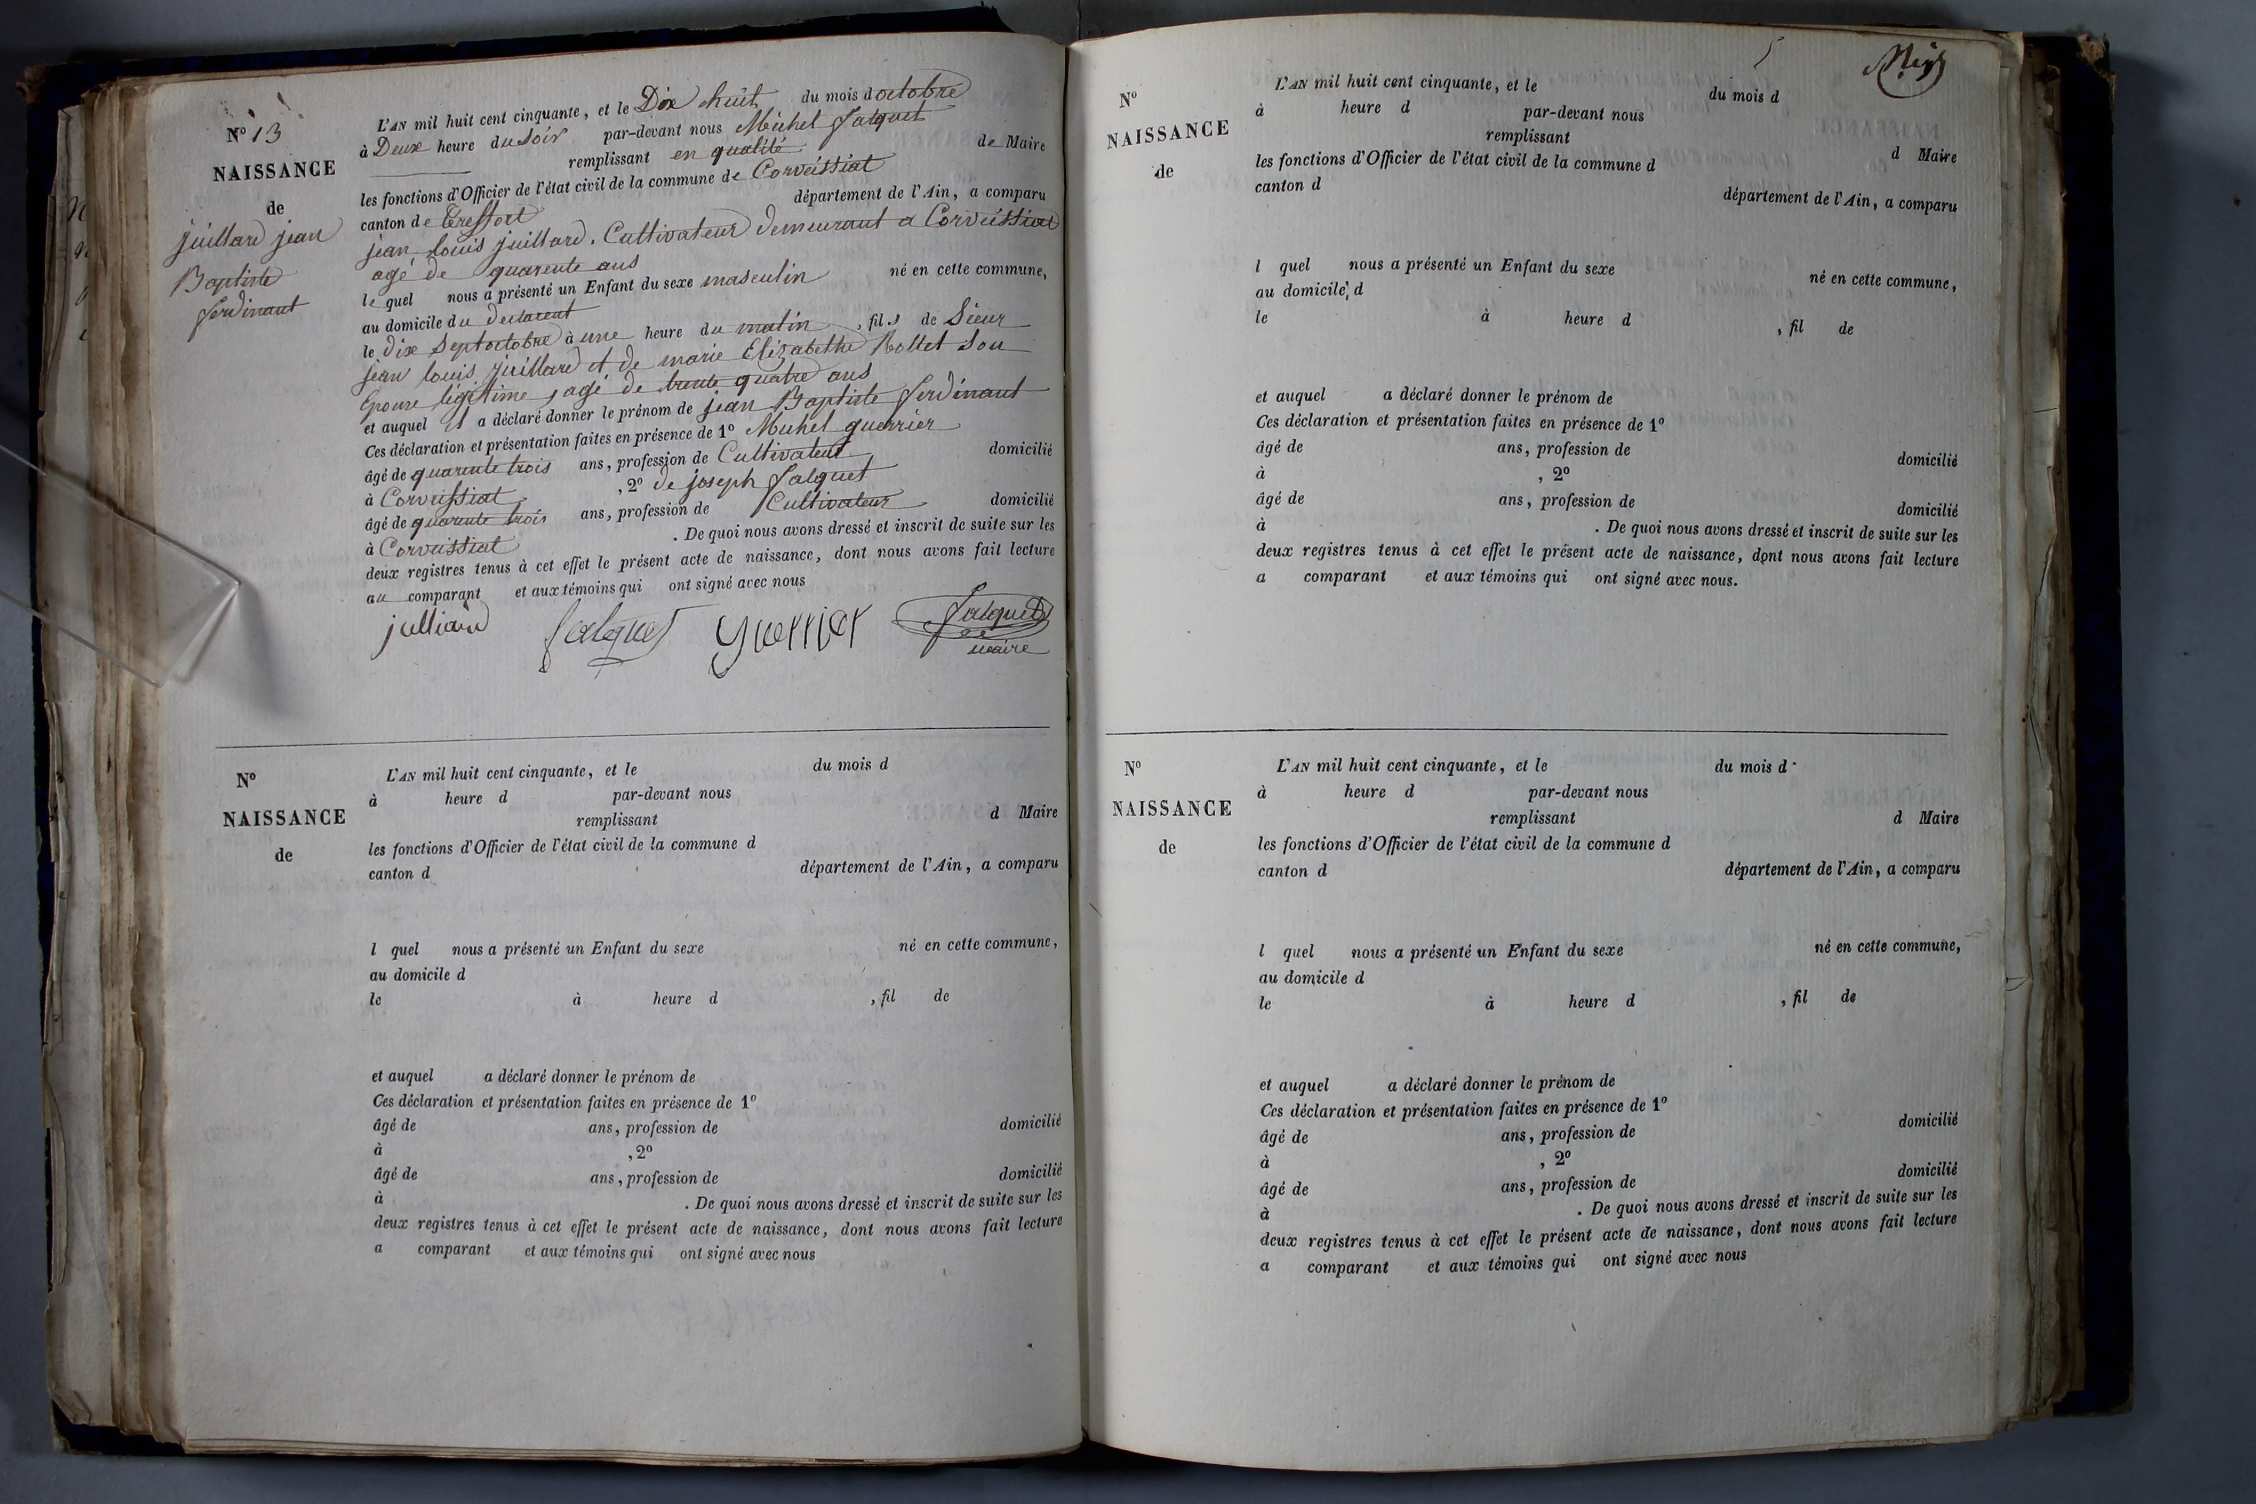 N° 13
NAISSANCE
de
juillard jean
Baptiste
ferdinant
L'AN mil huit cent cinquante, et le Dix huit du mois d octobre
à Deux heure du Soir par-devant nous Michel falquet
remplissant en qualité de Maire
les fonctions d'Officier de l'état civil de la commune de Corveissiat
canton de Treffort département de l'Ain, a comparu
jean louis juillard. Cultivateur demeurant a Corveissiat
agé de quarente ans
le quel nous a présenté un Enfant du sexe masculin né en cette commune,
au domicile du declarent
le dix Sept octobre à une heure du matin, fils de Sieur
jean louis juillard et de marie Elizabethe Rollet Son
Epouse légitime, agé de trente quatre ans
et auquel il a déclaré donner le prénom de jean Baptiste ferdinant
Ces déclaration et présentation faites en présence de 1° Michel guerrier
âgé de quarente trois ans, profession de Cultivateur domicilié
à Corveissiat, 2° de joseph falquet
âgé de quarente trois ans, profession de Cultivateur domicilié
à Corveissiat. De quoi nous avons dressé et inscrit de suite sur les
deux registres tenus à cet effet le présent acte de naissance, dont nous avons fait lecture
au comparant et aux témoins qui ont signé avec nous
julliard falquet guerrier falquet
maire
N°
NAISSANCE
de
L'AN mil huit cent cinquante, et le du mois d
à heure d par-devant nous
remplissant d Maire
les fonctions d'Officier de l'état civil de la commune d
canton d département de l'Ain, a comparu
l quel nous a présenté un Enfant du sexe né en cette commune,
au domicile d
le à heure d , fil de
et auquel a déclaré donner le prénom de
Ces déclaration et présentation faites en présence de 1°
âgé de ans, profession de domicilié
à , 2°
âgé de ans, profession de domicilié
à . De quoi nous avons dressé et inscrit de suite sur les
deux registres tenus à cet effet le présent acte de naissance, dont nous avons fait lecture
a comparant et aux témoins qui ont signé avec nous
5
N°
NAISSANCE
de
L'AN mil huit cent cinquante, et le du mois d
à heure d par-devant nous
remplissant d Maire
les fonctions d'Officier de l'état civil de la commune d
canton d département de l'Ain, a comparu
l quel nous a présenté un Enfant du sexe né en cette commune,
au domicile, d
le à heure d , fil de
et auquel a déclaré donner le prénom de
Ces déclaration et présentation faites en présence de 1°
âgé de ans, profession de domicilié
à , 2°
âgé de ans, profession de domicilié
à . De quoi nous avons dressé et inscrit de suite sur les
deux registres tenus à cet effet le présent acte de naissance, dont nous avons fait lecture
a comparant et aux témoins qui ont signé avec nous.
N°
NAISSANCE
de
L'AN mil huit cent cinquante, et le du mois d
à heure d par-devant nous
remplissant d Maire
les fonctions d'Officier de l'état civil de la commune d
canton d département de l'Ain, a comparu
l quel nous a présenté un Enfant du sexe né en cette commune,
au domicile d
le à heure d , fil de
et auquel a déclaré donner le prénom de
Ces déclaration et présentation faites en présence de 1°
âgé de ans, profession de domicilié
à , 2°
âgé de ans, profession de domicilié
à . De quoi nous avons dressé et inscrit de suite sur les
deux registres tenus à cet effet le présent acte de naissance, dont nous avons fait lecture
a comparant et aux témoins qui ont signé avec nous